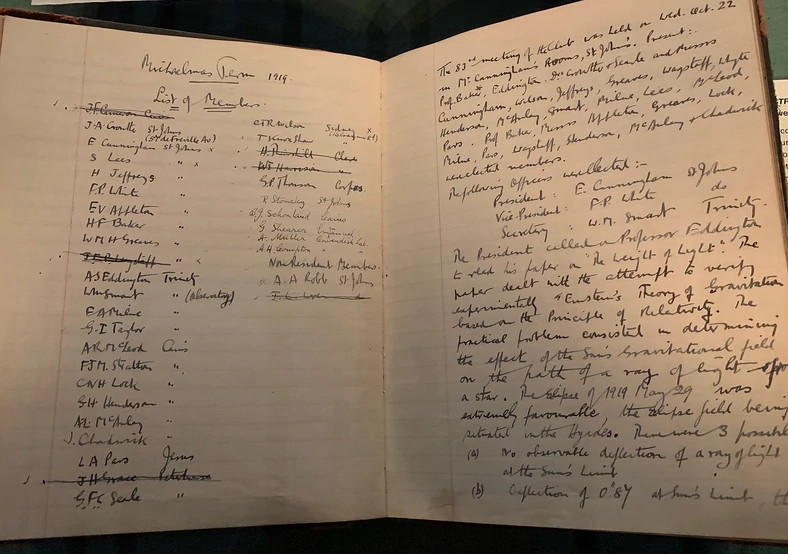 Michaelmas Term 1919.
List of Members.
J.A. Crowther St Johns
E Cunningham St Johns x
S Lees " x
H Jeffreys "
F.P. White "
E.V. Appleton "
HF Baker "
W.M.H Greaves "
A.S Eddington Trinity
W.M Smart " (Observatory)
E A Milne "
G.I Taylor "
A.R. McLeod Caius
F.J.M. Stratton "
C.N.H Lock "
G.H Henderson "
A.L. McAulay "
J. Chadwick "
L A Pars Jesus
J H Grace Peterhouse
G.F.C. Searle "
C.T.R. Wilson Sidney x
G.P. Thomson Corpus
R Stoneley St Johns
G Shearer
A. Müller
A.H. Compton "
Non Resident Members.
A. A Robb St Johns
The 83rd meeting of the Club was held on Wed. Oct. 22
in Mr Cunningham's Rooms, St John's. Present:.
Prof. Baker, Eddington, Dr. Crowther & Searle and Messrs
Cunningham, Wilson, Jeffreys, Greaves, Wagstaff, White
Henderson, McAulay, Smart, Milne, Lees, McLeod,
Pars. Prof Baker, Messrs Appleton, Greaves, Lock,
Milne, Pars, Wagstaff, Henderson, McAulay & Chadwick
were elected members.
The following Officers were elected:-
President : E. Cunningham St Johns
Vice-President : F.P. White do
Secretary : W.M. Smart Trinity.
The President called on Professor Eddington
to read his paper on "The Weight of Light". The
paper dealt with the attempt to verify
experimentally Einstein's Theory of Gravitation
based on the Principle of Relativity. The
practical problem consisted in determining
the effect of the Sun's Gravitational field
on the path of a ray of light
a star. The Eclipse of 1919 May 29 was
extremely favourable, the Eclipse field being
situated in the Hyades. There were 3 possible
(a) No observable deflection of a ray of light
at the Sun's Limb
(b) Deflection of 0".87 at Sun's Limb,